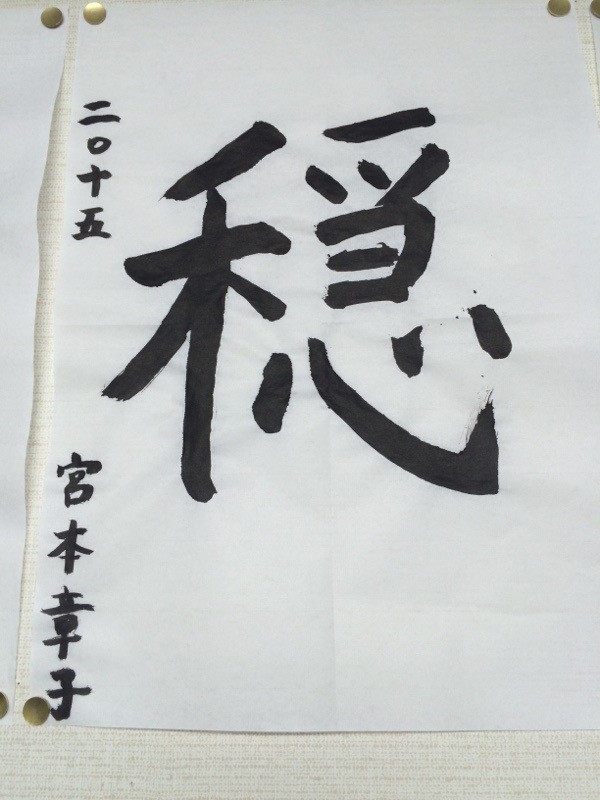 穏
二〇十五
宮本章子